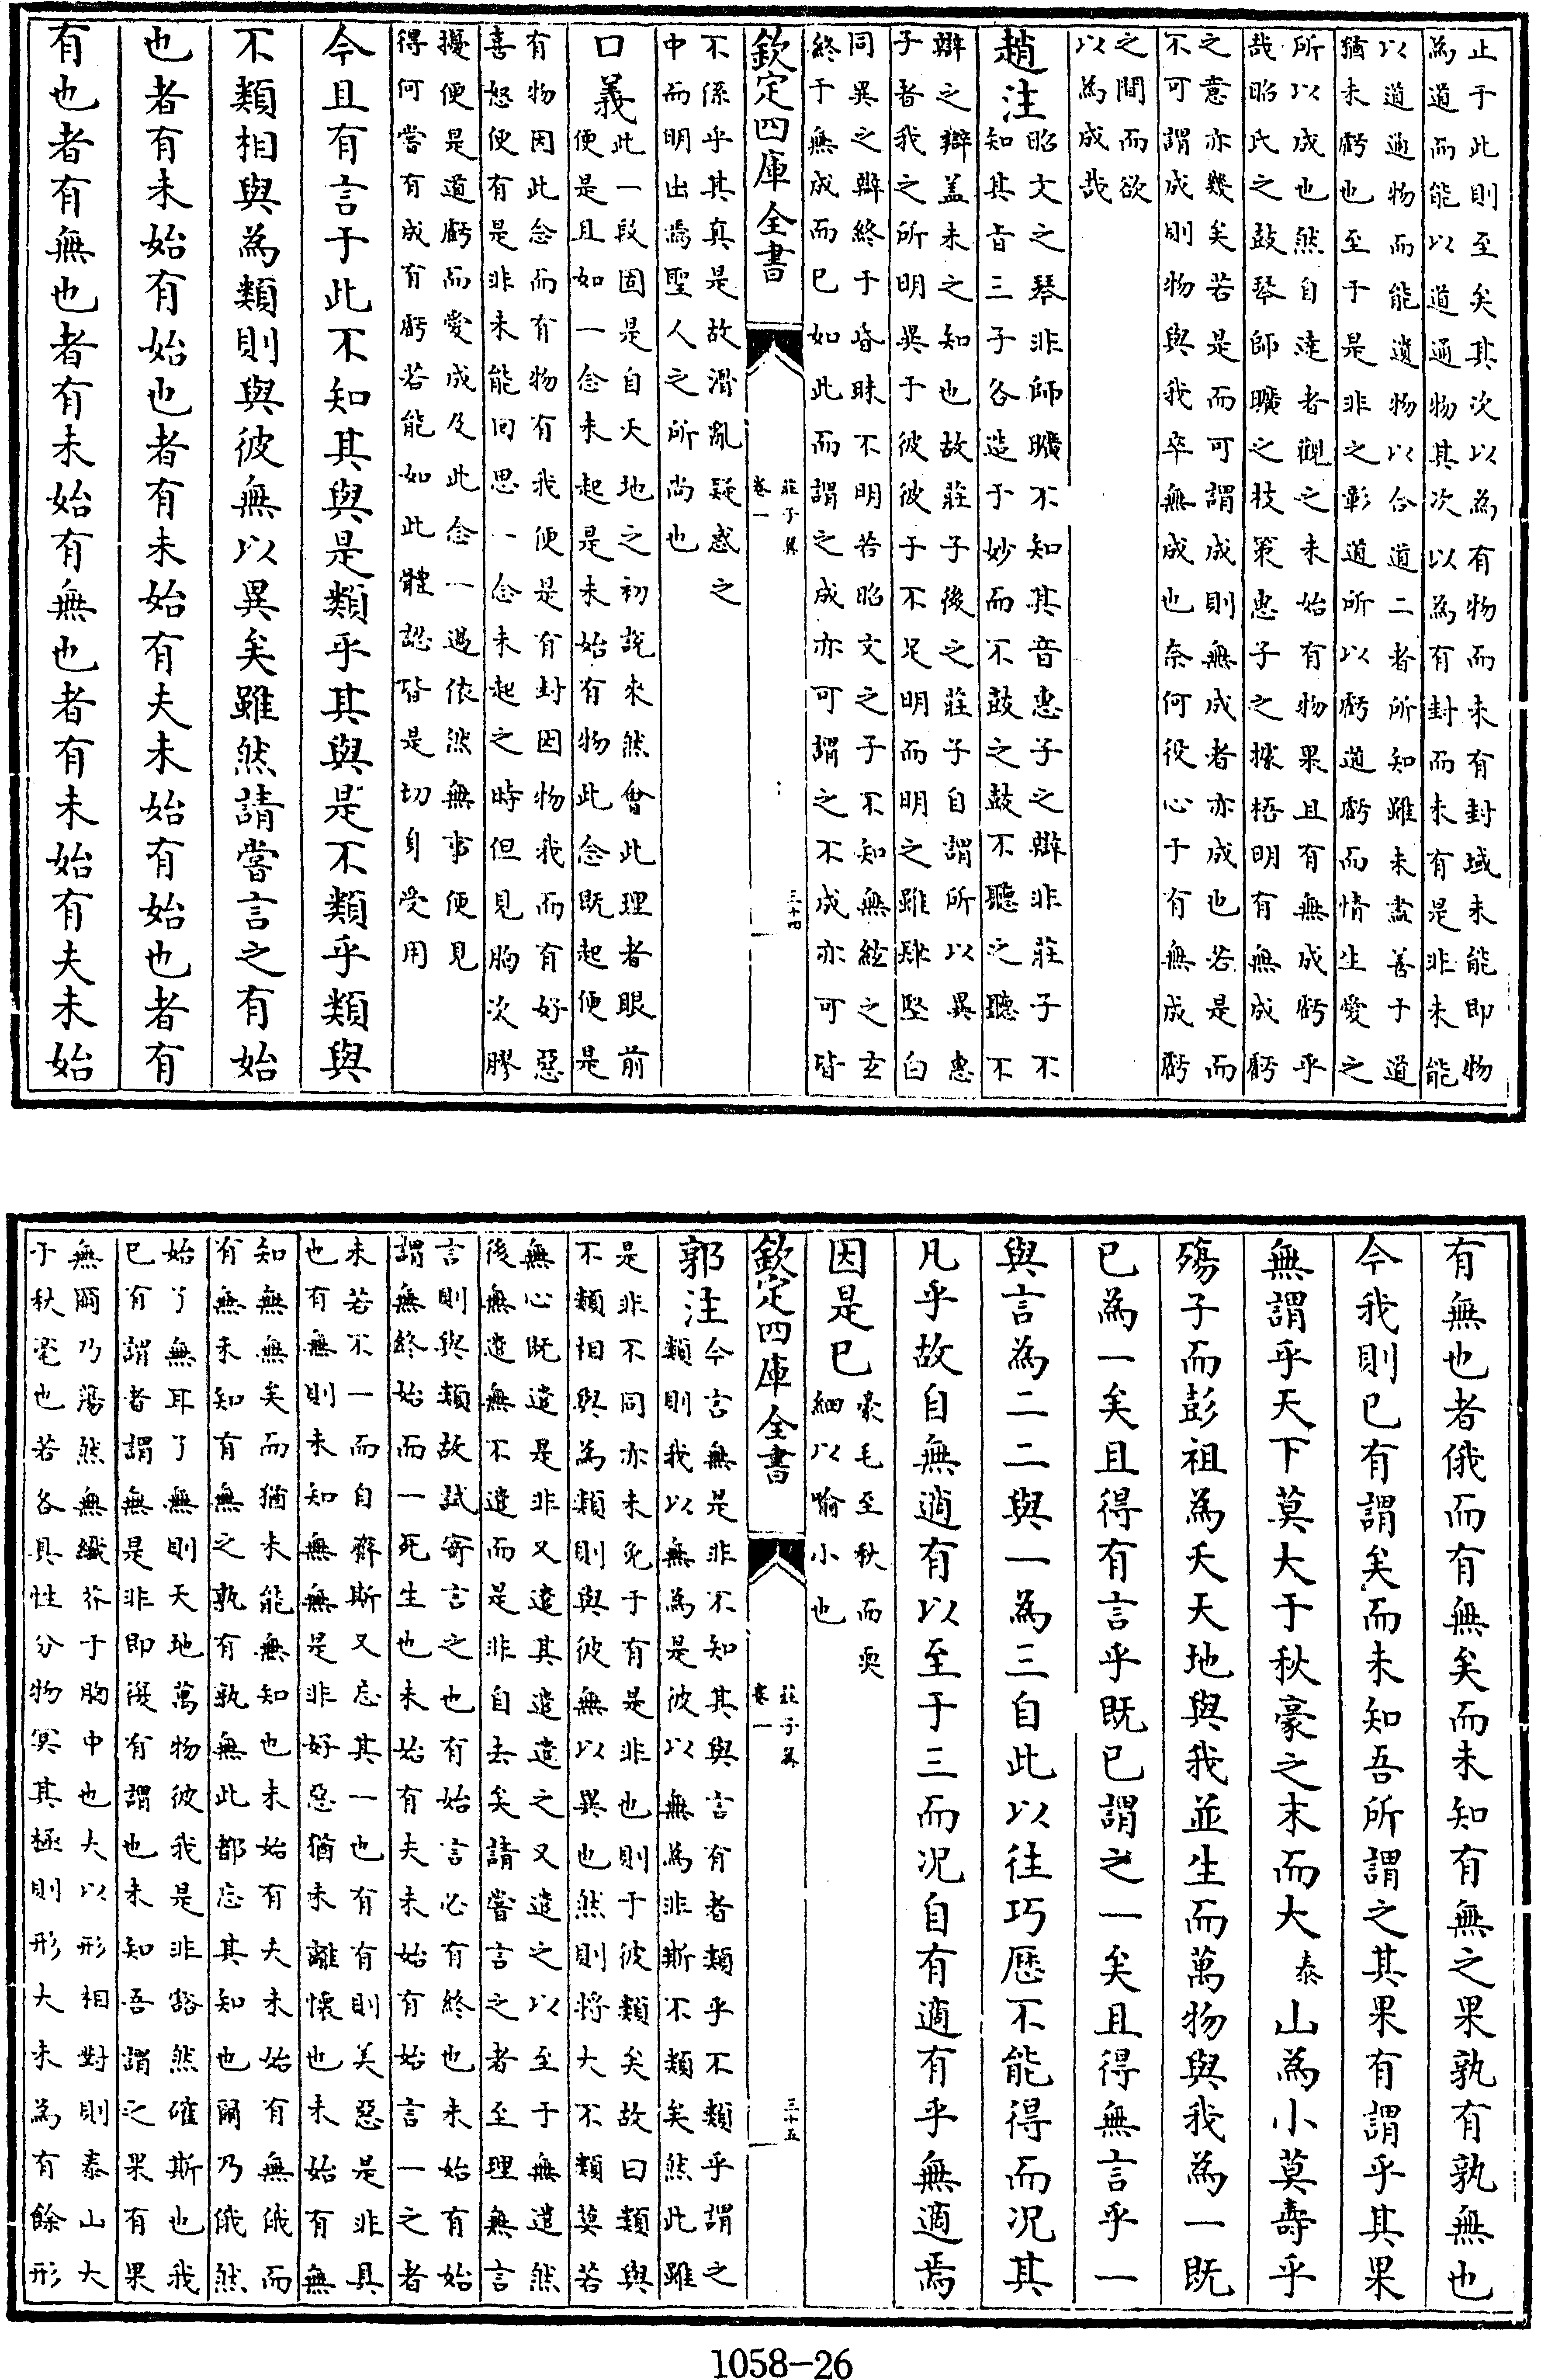 止于此則至矣其次以為有物而未有封域未能即物
為道而能以道通物其次以為有封而未有是非未能
以道通物而能遺物以合道二者所知雖未盡善于道
猶未虧也至于是非之彰道所以虧道虧而情生愛之
所以成也然自達者觀之未始有物果且有無成虧乎
哉昭氏之鼓琴師曠之枝策惠子之據梧明有無成虧
之意亦幾矣若是而可謂成則無成者亦成也若是而
不可謂成則物與我卒無成也奈何役心于有無成虧
之間而欲
以為成哉
趙注
昭文之琴非師曠不知其音惠子之辯非莊子不
知其旨三子各造于妙而不鼓之鼓不聽之聽不
辯之辯蓋未之知也故莊子後之莊子自謂所以異惠
子者我之所明異于彼彼于不足明而明之雖肆堅白
同異之辯終于昏昧不明若昭文之子不知無絃之玄
終于無成而已如此而謂之成亦可謂之不成亦可皆
欽定四庫全書
莊子翼
卷一
三十四
不係乎其真是故滑亂疑惑之
中而明出焉聖人之所尚也
口義
此一段固是自天地之初說來然會此理者眼前
便是且如一念未起是未始有物此念既起便是
有物因此念而有物有我便是有封因物我而有好惡
喜怒便有是非未能回思一念未起之時但見胸次膠
擾便是道虧而愛成及此念一過依然無事便見
得何嘗有成有虧若能如此體認皆是切身受用
今且有言于此不知其與是類乎其與是不類乎類與
不類相與為類則與彼無以異矣雖然請嘗言之有始
也者有未始有始也者有未始有夫未始有始也者有
有也者有無也者有未始有無也者有未始有夫未始
有無也者俄而有無矣而未知有無之果孰有孰無也
今我則已有謂矣而未知吾所謂之其果有謂乎其果
無謂乎天下莫大于秋豪之末而大泰山為小莫壽乎
殤子而彭祖為夭天地與我並生而萬物與我為一既
已為一矣且得有言乎既已謂之一矣且得無言乎一
與言為二二與一為三自此以往巧歷不能得而况其
凡乎故自無適有以至于三而况自有適有乎無適焉
因是已
豪毛至秋而耎
細以喻小也
欽定四庫全書
莊子翼
卷一
三十五
郭注
今言無是非不知其與言有者類乎不類乎謂之
類則我以無為是彼以無為非斯不類矣然此雖
是非不同亦未免于有是非也則于彼類矣故曰類與
不類相與為類則與彼無以異也然則將大不類莫若
無心既遣是非又遣其遣遣之又遣之以至于無遣然
後無遣無不遣而是非自去矣請嘗言之者至理無言
言則與類故試寄言之也有始言必有終也未始有始
謂無終始而一死生也未始有夫未始有始言一之者
未若不一而自齊斯又忘其一也有有則美惡是非具
也有無則未知無無是非好惡猶未離懷也未始有無
知無無矣而猶未能無知也未始有夫未始有無俄而
有無未知有無之孰有孰無此都忘其知也爾乃俄然
始了無耳了無則天地萬物彼我是非豁然確斯也我
已有謂者謂無是非即復有謂也未知吾謂之果有果
無爾乃蕩然無纖芥于胸中也夫以形相對則泰山大
于秋毫也若各具性分物冥其極則形大未為有餘形
1058-26